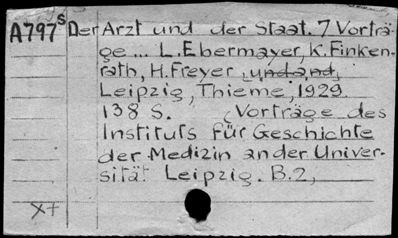 A797ˢ Der Arzt und der Staat. 7 Vorträ-
ge ... L. Ebermayer, K. Finken-
rath, H. Freyer und and.
Leipzig, Thieme, 1929.
138 S. (Vorträge des
Instituts für Geschichte
der Medizin an der Univer-
sität Leipzig. B.2,
x+